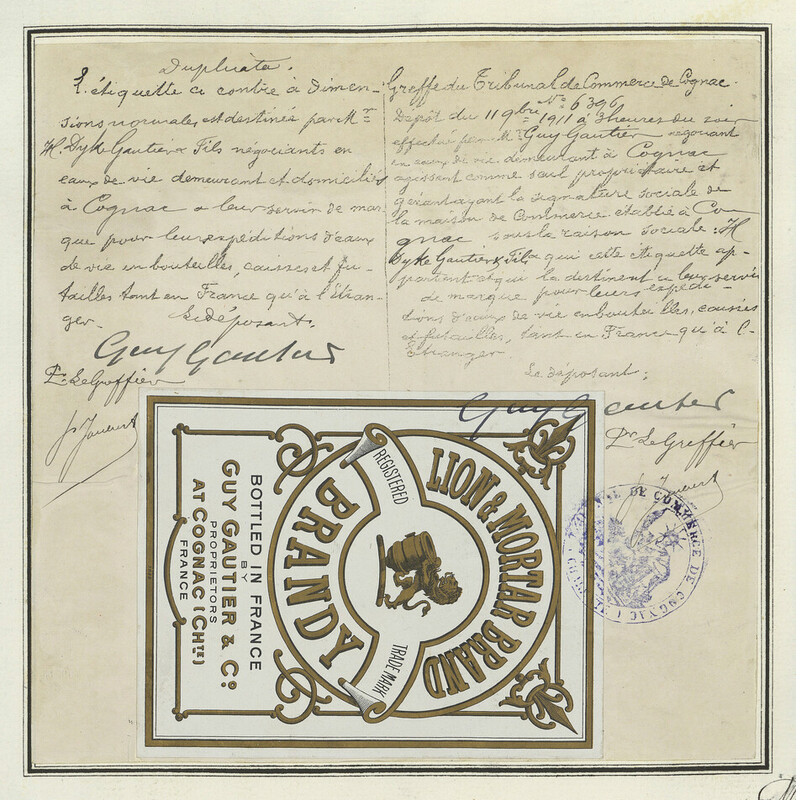 Duplicata.
L'étiquette ci contre à dimen-
sions normales, est destinée par Mr
H. Dyke Gautier & Fils négociants en
eaux de vie demeurant et domiciliés
à Cognac a leur servir de mar-
que pour leurs expéditions d'eaux
de vie en bouteilles, caisses et fu-
tailles tant en France qu'à l'étran-
ger.
Le déposant.
Guy Gautier
Pr Le Greffier
Greffe du Tribunal de Commerce de Cognac.
No 6396
Dépôt du 11 9bre 1911 à 3 heures du soir
effectué par Mr Guy Gautier négociant
en eaux de vie demeurant à Cognac
agissant comme seul propriétaire et
gérant ayant la signature sociale de
la maison de Commerce établie à Co-
gnac sous la raison sociale: H
Dyke Gautier & Fils qui cette étiquette ap-
partient et qui la destinent a leur servir
de marque pour leurs expédi-
tions d'eaux de vie en bouteilles, caisses
et futailles, tant en France qu'à l'-
Etranger
Le déposant:
Guy Gautier
Pr Le Greffier
LION & MORTAR BRAND
REGISTERED
TRADE MARK
BRANDY
BOTTLED IN FRANCE
BY
GUY GAUTIER & Co
PROPRIETORS
AT COGNAC (CHTE)
FRANCE
DE COMMERCE DE COGNAC